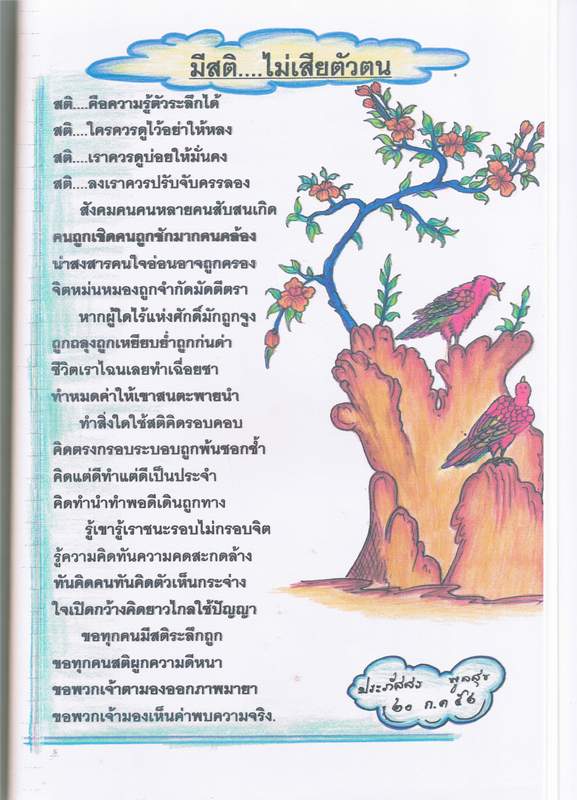 มีสติ....ไม่เสียตัวตน
สติ....คือความรู้ตัวระลึกได้
สติ....ใครควรดูไว้อย่าให้หลง
สติ....เราควรดูบ่อยให้มั่นคง
สติ....ลงเราควรปรับจับครรลอง
สังคมคนคนหลายคนสับสนเกิด
คนถูกเชิดคนถูกชักมากคนคล้อง
น่าสงสารคนใจอ่อนอาจถูกครอง
จิตหม่นหมองถูกจำกัดมัดตีตรา
หากผู้ใดไร้แห่งศักดิ์มักถูกจูง
ถูกถลุงถูกเหยียบย่ำถูกก่นด่า
ชีวิตเราไฉนเลยทำเฉื่อยชา
ทำหมดค่าให้เขาสนตะพายนำ
ทำสิ่งใดใช้สติคิดรอบคอบ
คิดตรงกรอบระบอบถูกพ้นชอกช้ำ
คิดแต่ดีทำแต่ดีเป็นประจำ
คิดทำนำทำพอดีเดินถูกทาง
รู้เขารู้เราชนะรอบไม่กรอบจิต
รู้ความคิดทันความคดสะกดล้าง
ทันคิดคนทันคิดตัวเห็นกระจ่าง
ใจเปิดกว้างคิดยาวไกลใช้ปัญญา
ขอทุกคนมีสติระลึกถูก
ขอทุกคนสติผูกความดีหนา
ขอพวกเจ้าตามองออกภาพมายา
ขอพวกเจ้ามองเห็นค่าพบความจริง.
ประภัสสร พูลสุข
๒๐ ก.ค ๕๒